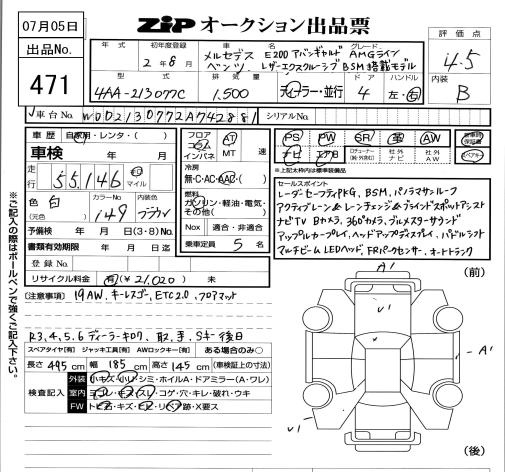 07月05日
ZIP オークション出品票
出品No.
471
年式 初年度登録 車名 グレード
2年8月 メルセデスベンツ E200アバンギャルド AMGライン
レザーエクスクルーシブ BSM搭載モデル
型式 排気量 ドア ハンドル
4AA-213077C 1,500 ディーラー・並行 4 左・右
評価点
4.5
内装
B
車台No. W002130772A742881 シリアルNo.
車歴 自家用・レンタ・( )
車検 年 月
走行 55,146 km マイル
色 白 カラーNo. 149 内装色 ブラウン
(元色)
予備検 年 月 日(3・8)No.
書類有効期限 年 月 日迄
登録No.
リサイクル料金 有(¥21,020) 未
フロア コラム インパネ AT MT 速
冷房
無・C・AC・AAC・( )
燃料
ガソリン・軽油・電気・その他( )
Nox 適合・非適合
乗車定員 5 名
PS PW SR 革 AW
ナビ エアB 社外ナビ 社外AW
新車時保証書
スペアキー
*上記太枠内は標準装備品
セールスポイント
レーダーセーフティPKG、BSM、パノラマサンルーフ
アクティブレーン&レーンチェンジ&ブラインドスポットアシスト
ナビTV Bカメラ、360°カメラ、ブルメスターサウンド
アップルカープレイ、ヘッドアップディスプレイ、パドルシフト
マルチビームLEDヘッド、FRパークセンサー、オートトランク
[注意事項] 19AW、キーレスゴー、ETC2.0、フロアマット
R3,4,5,6ディーラーキロク、取、手、Sキー後日
スペアタイヤ[有] ジャッキ工具[有] AWロックキー[有] ある場合のみ○
長さ 495cm 幅 185cm 高さ 145cm (車検証上の寸法)
検査記入
外装 小キズ・小凹・シミ・ホイルA・ドアミラー(A・ワレ)
室内 ヨゴレ・キズ・スレ・コゲ・穴・キレ・破れ・ウキ
FW トビ石・キズ・ヒビ・リペア跡・X要ス
※ご記入の際はボールペンで強くご記入下さい。
(前)
A1
v1
A1
v1
(後)